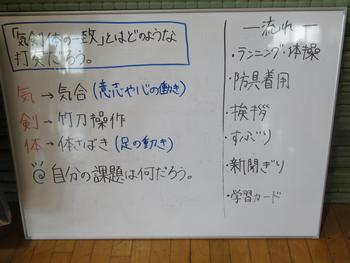 「気剣体の一致」とはどのような
打突だろう。
気→気合(意志や心の働き)
剣→竹刀操作
体→体さばき(足の動き)
@自分の課題は何だろう。
ー流れー
・ランニング・体操
・防具着用
・挨拶
・すぶり
・新聞ぎり
・学習カード